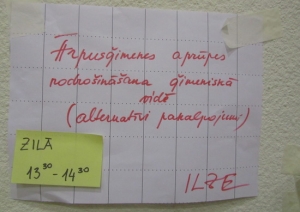 Ārpusģimenes aprūpes
nodrošināšana ģimeniskā
vidē
(alternatīvi pakalpojumi)
ZILĀ
13³⁰-14³⁰
ILZE